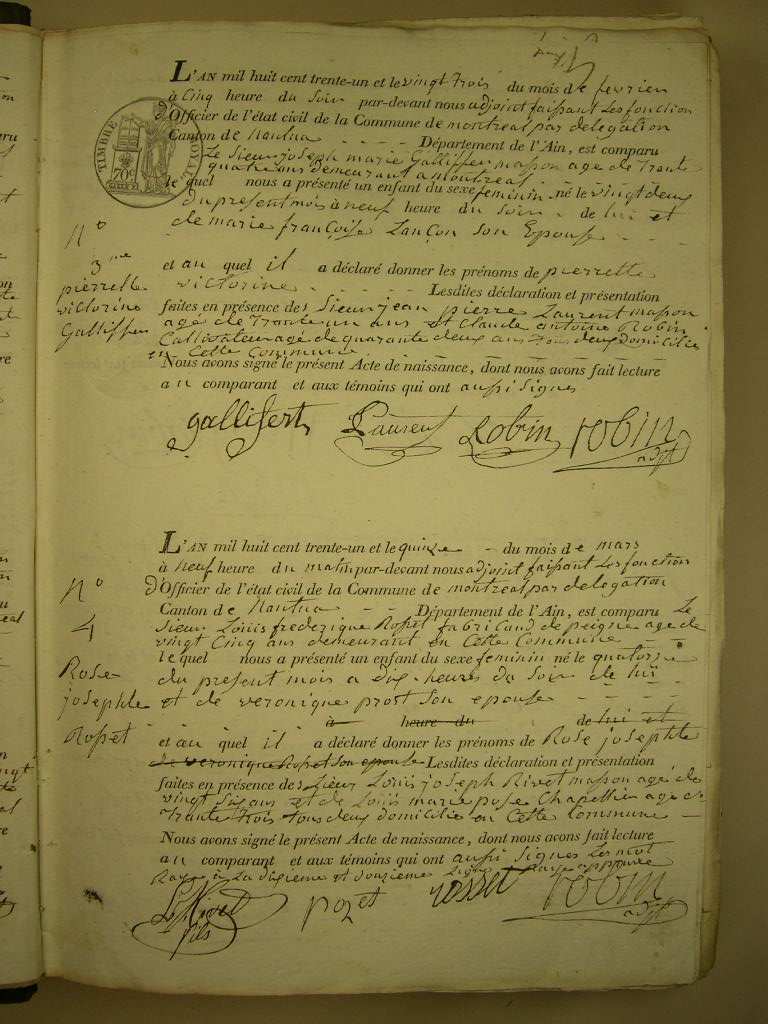 L'AN mil huit cent trente-un et le vingt trois du mois de fevrier
à Cinq heure du Soir par-devant nous adjoint faisant Les fonction
d'Officier de l'état civil de la Commune de montreal par delegation
Canton de Nantua - - - - Département de l'Ain, est comparu
Le Sieur joseph marie Galliffer masson age de Trante
quatre ans demeurant a montreal - -
le quel nous a présenté un enfant du sexe feminin né le vingt deux
du present mois à neuf heure du Soir - de lui et
de marie françoise Lançon son Epouse - - -
N°
3me
pierrette
victorine
Galliffer
et au quel il a déclaré donner les prénoms de pierrette
victorine - - - - Lesdites déclaration et présentation
faites en présence des Sieur jean pierre Laurent masson
age de Trante un ans et Claude antoine Robin
Cultivateur age de quarante deux ans tous deux domicilie
en Cette Commune
Nous avons signé le présent Acte de naissance, dont nous avons fait lecture
au comparant et aux témoins qui ont aussi signes
gallifert Laurent Robin robin
adjt
TIMBRE ROYAL
70c
L'AN mil huit cent trente-un et le quinze - du mois de mars
à neuf heure du matin par-devant nous adjoint faisant Les fonction
d'Officier de l'état civil de la Commune de montreal par delegation
Canton de Nantua - - - Département de l'Ain, est comparu Le
Sieur Louis frederique Rosset fabricand de peigne age de
vingt Cinq ans demeurant en Cette Commune
le quel nous a présenté un enfant du sexe feminin né le quatorze
du present mois a dix heures du Soir de lui
et de veronique prost son epouse - - - -
à heure du de lui et
N°
4
Rose
josephte
Rosset
et au quel il a déclaré donner les prénoms de Rose josephte
de veronique Rosset son epouse Lesdites déclaration et présentation
faites en présence des Sieur Louis joseph Rivet masson age de
vingt Six ans et de Louis marie pose Chapellier age de
Trante Trois tous deux domicilie en Cette Commune -
Nous avons signé le présent Acte de naissance, dont nous avons fait lecture
au comparant et aux témoins qui ont aussi signes Les mot
Raye à La dixieme et douzieme Ligne
Rivet fils pozet rosset robin
adjt